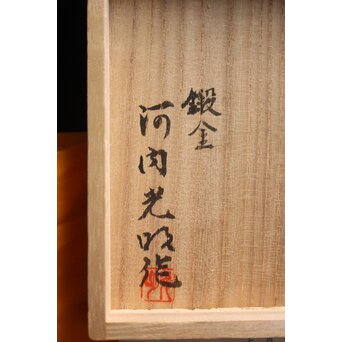 鍛金
河内光明造